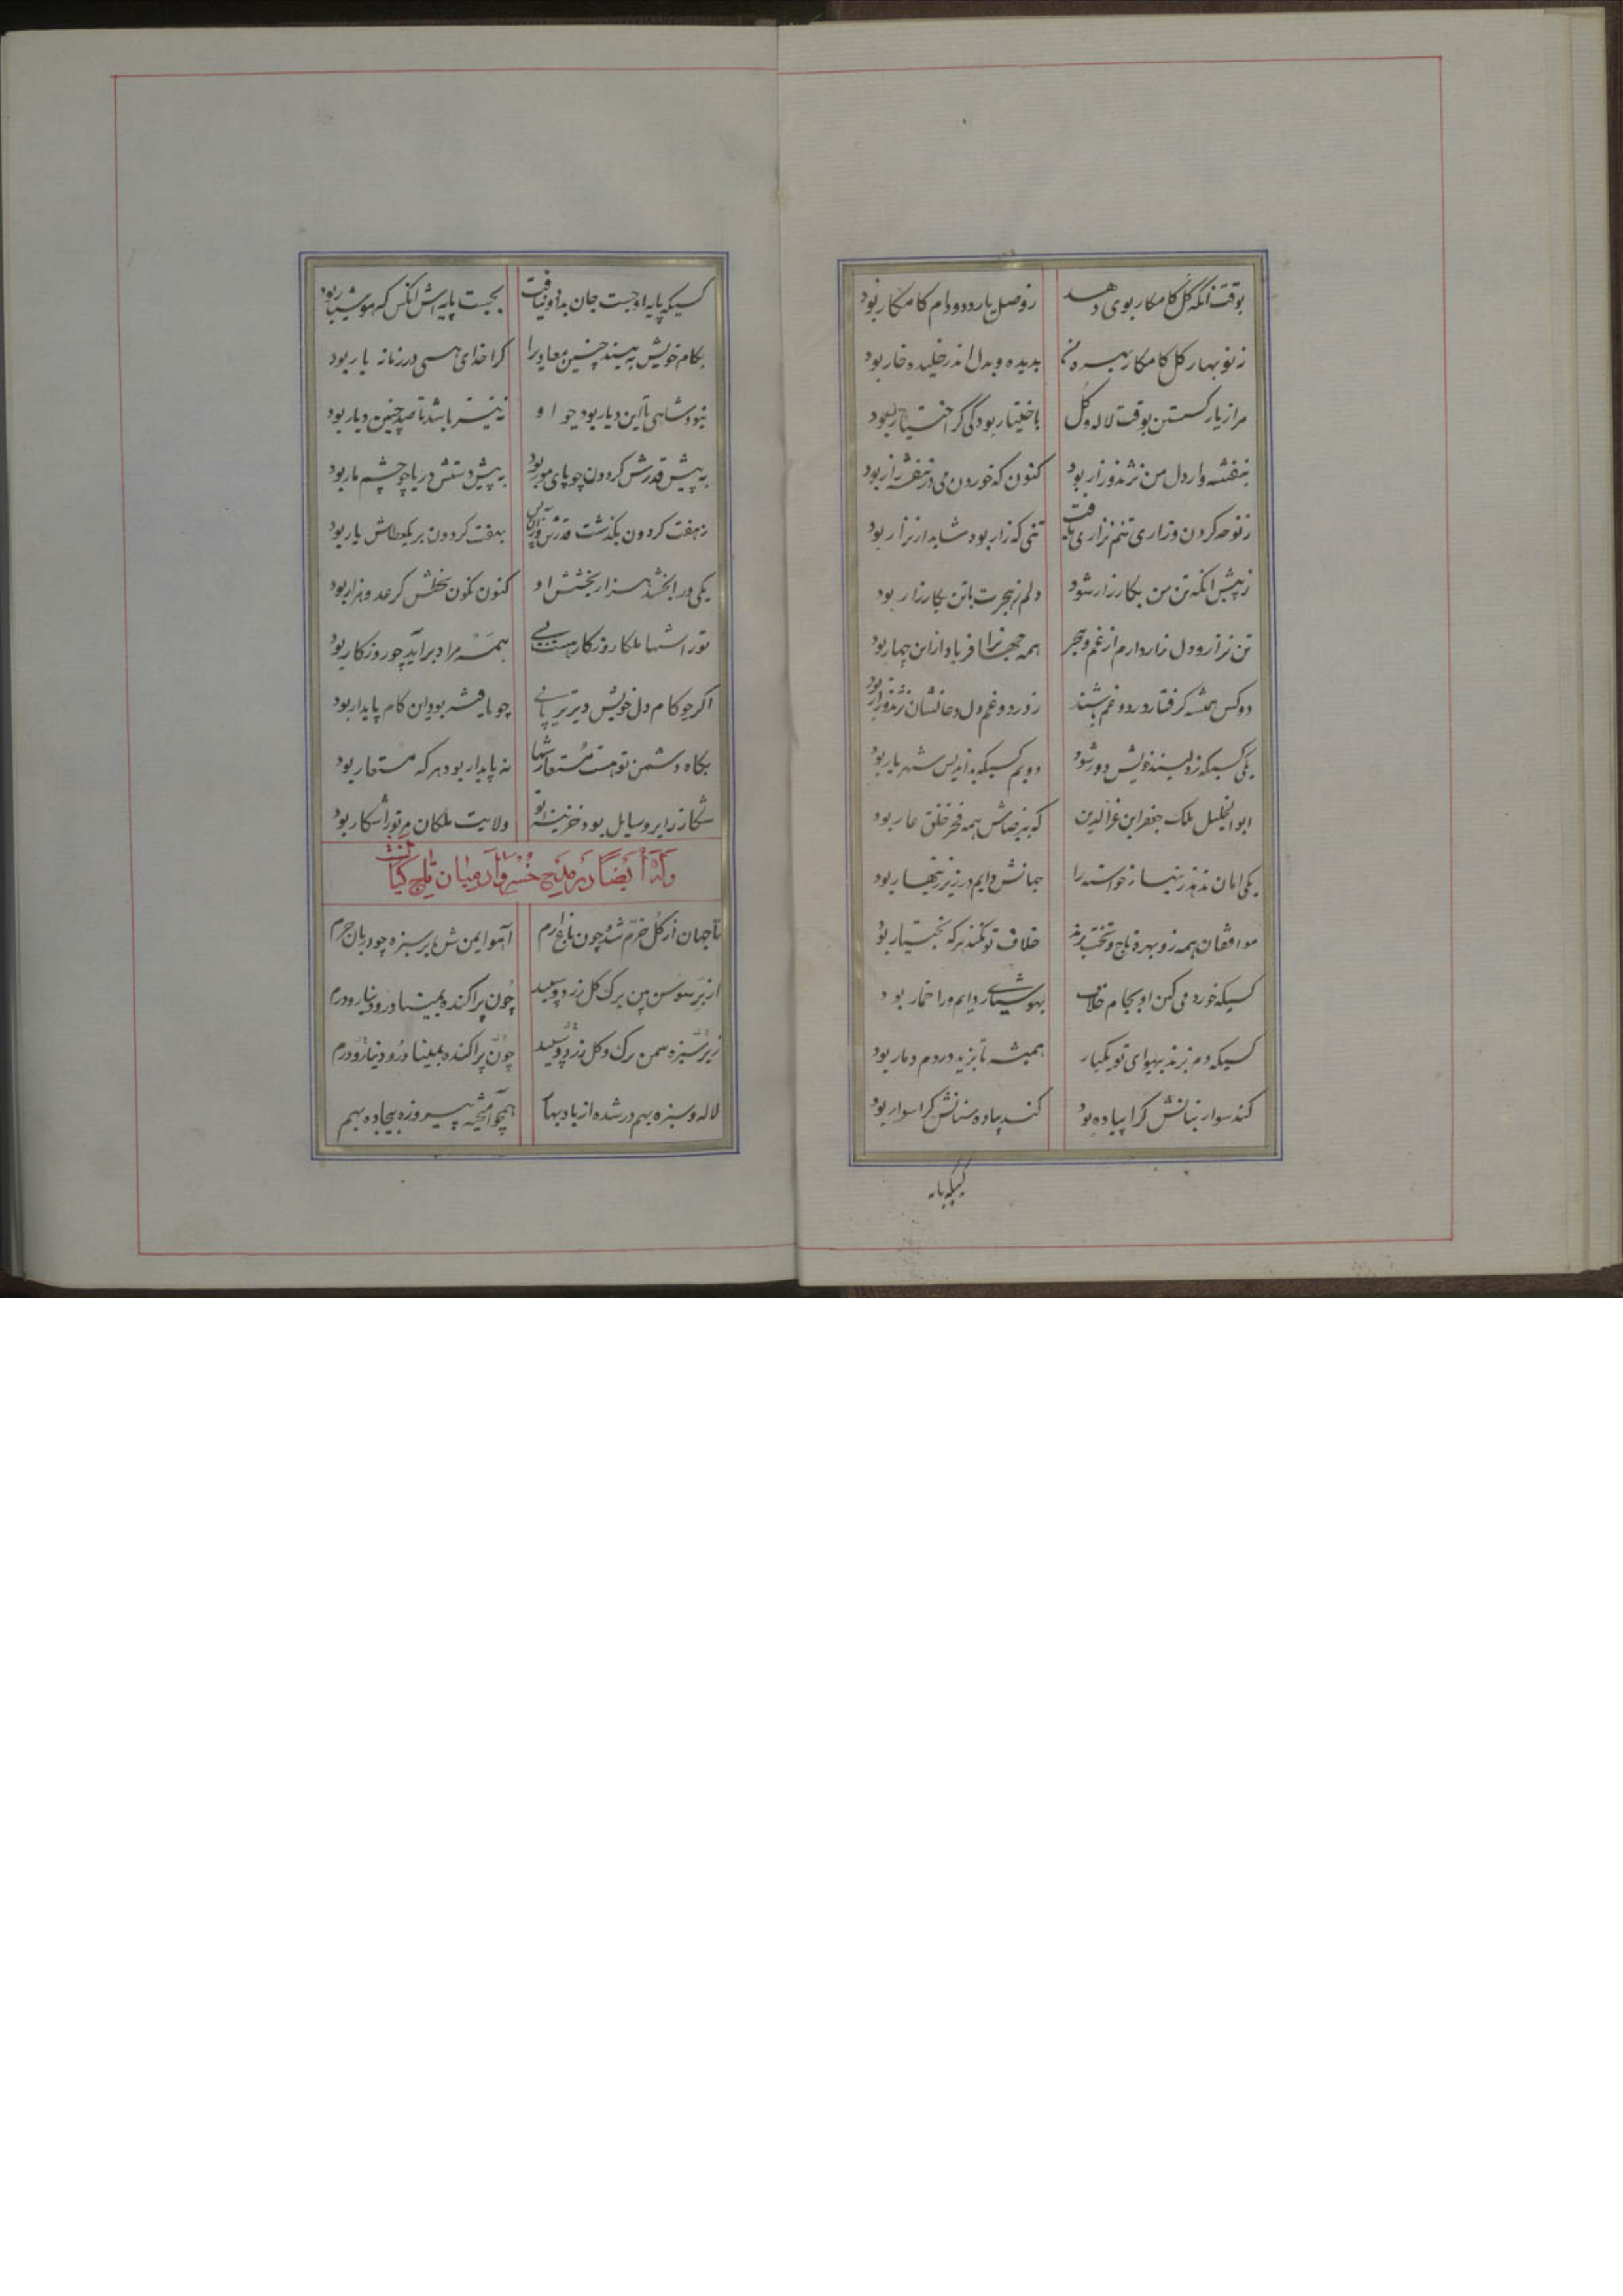 بوقت آنکه گل کامکار بوی دهد زوصل یار دودام کامکار بود
زنو بهار گل کامکار بهره بدیده و بدل اندر خلیده خار بود
مرا زیار گستن بوقت لاله و گل باختیار بود کی گر اختیار بود
بنفشه وار دل من نژند وزار بود کنون که خوردن می در بنفشه زار بود
زنوحه کردن وزاری تنم نزاری یافت تنی که زار بود شاید ار نزار بود
زپیش آنکه تن من بکار زار شود دلم زهجرت باتن بکارزار بود
تن نزار و دل زار دارم از غم وهجر همه جهانرا فریاد ازین چهار بود
دو کس همیشه گرفتار درد و غم باشند زدرد و غم دل و جانشان نژند وزار بود
یکی کسیکه زدلبند خویش دور شود دویم کسیکه بداندیس شهریار بود
ابو الخلیل ملک جعفر ابن عزالدین که بیرضاش همه فخر خلق عار بود
یکی امان ندهد زینهار خواسته را جهانش دایم در زیر زینهار بود
موافقان همه زو بهره تاج و تخت برند خلاف تو نکند هرکه بختیار بود
کسیکه خورد می کین او بجام خلاف بهوشیاری دایم ورا خمار بود
کسیکه دم بزند بهوای تو یکبار همیشه تا بزید در دم دمار بود
کند سوار بنانش کرا پیاده بود کند پیاده سنانش کرا سوار بود
کسیکه پایه
کسیکه پایه او جست جان بداد و نیافت بجست پایه اش آنکس که هوشیار بود
بکام خویش به بیند چنین معاویرا کرا خدای همی در زمانه یار بود
نبود شاهی تا این دیار بود چو او نه نیز باشد تا صد چنین دیار بود
به پیش قدرش گردون چو پای مور بود به پیش دستش دریا چو چشم مار بود
زهفت گردون بگذشت قدرش بهفت گردون بر یکعطاش یار بود
یکی دو بخشد هزار بخشش او کنون نگون بخشش گر عدد هزار بود
تو را شها ملکا روزگار همه مراد برآید چو روزگار بود
اگر چو کام دل خویش دیرتر یابی چو یافته بود آن کام پایدار بود
بکاه دشمن تو هست مستعار شها نه پایدار بود هر که مستعار بود
شکار زایر و سایل بود خزینه تو ولایت ملکان مر تو را شکار بود
وَلَهُ اَیضاً دَر مَدحِ خُسرو اَرمیان تاج کیان گفت
تا جهان از گل خرّم شد چون باغ ارم آهو ایمن شد بر سبزه چو در بان حرم
از بَر سوسن بین برگ گل زرد و سپید چون پراکنده بمینا درو دینار و درم
زیر سبزه سمن برگ و گل زرد و سپید چون پراکنده بمینا درو دینار و درم
لاله و سبزه بهم در شده از باد بهار همچو آمیخته پیروزه بیجاده بهم